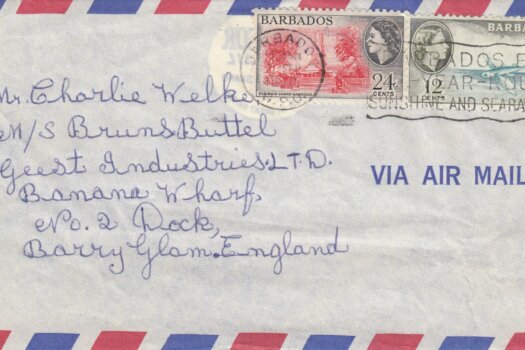 BARBADOS
24
CENTS
12
CENTS
G.P.O.
BARBADOS
YEAR-ROUND
SUNSHINE AND SEABA
Mr. Charlie Welke
M/S BrunsButtel
Geest Industries LTD.
Banana Wharf,
No. 2 Dock,
Barry Glam. England
VIA AIR MAIL